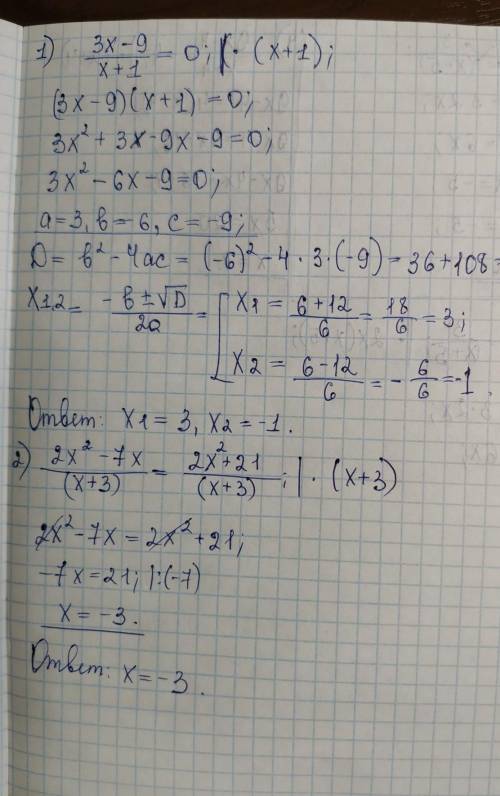 1) (3x-9)/(x+1) = 0; | · (x+1);
(3x-9)(x+1) = 0;
3x² + 3x - 9x - 9 = 0;
3x² - 6x - 9 = 0;
a=3, в=-6, c=-9;
D = в² - 4ac = (-6)² - 4 · 3 · (-9) = 36+108=
x1,2 = (-в ± √D)/(2a) = [ x1 = (6+12)/6 = 18/6 = 3;
x2 = (6-12)/6 = - 6/6 = -1.
Ответ: x1 = 3, x2 = -1.
2) (2x² - 7x)/((x+3)) = (2x²+21)/((x+3)); | · (x+3)
2x² - 7x = 2x² + 21;
-7x = 21; |:(-7)
x = -3.
Ответ: x = -3.